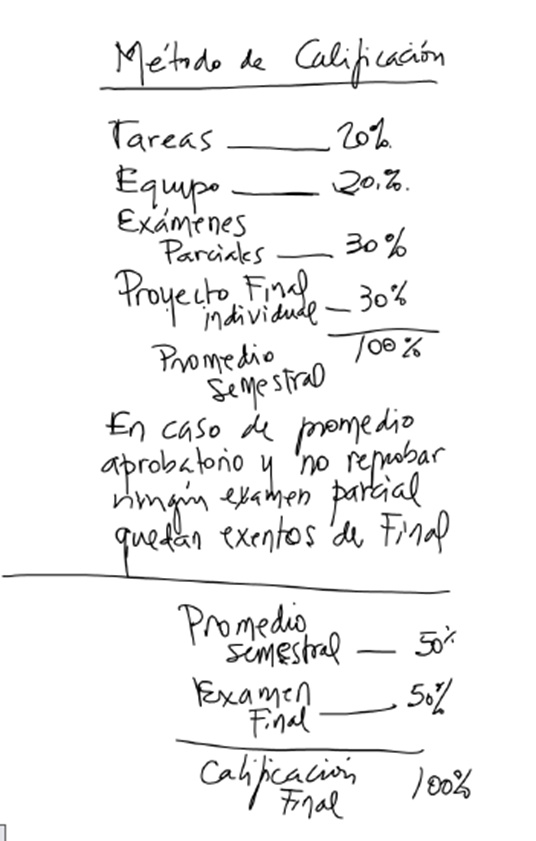 Método de Calificación
Tareas ——— 20%.
Equipo ——— 20.%.
Exámenes
Parciales —— 30%
Proyecto Final
individual — 30%
100%
Promedio
semestral
En caso de promedio
aprobatorio y no reprobar
ningún examen parcial
quedan exentos de Final
Promedio
semestral — 50%
Examen
Final ——— 50%
Calificación
Final 100%